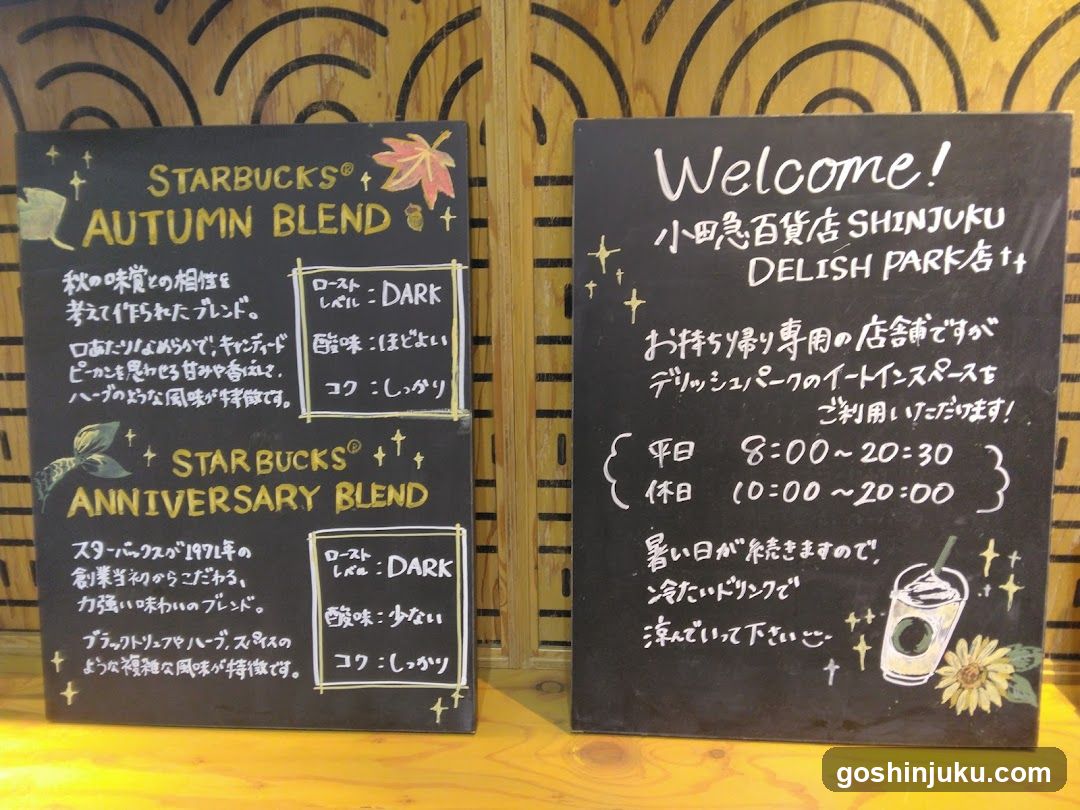 STARBUCKS®
AUTUMN BLEND
秋の味覚との相性を
考えて作られたブレンド。
口あたりなめらかで、キャンディード
ピーカンを思わせる甘みや香ばしさ、
ハーブのような風味が特徴です。
ローストレベル：DARK
酸味：ほどよい
コク：しっかり
STARBUCKS®
ANNIVERSARY BLEND
スターバックスが1971年の
創業当初からこだわる、
力強い味わいのブレンド。
ブラックトリュフやハーブ、スパイスの
ような複雑な風味が特徴です。
ローストレベル：DARK
酸味：少ない
コク：しっかり
Welcome!
小田急百貨店SHINJUKU
DELISH PARK店
お持ち帰り専用の店舗ですが
デリッシュパークのイートインスペースを
ご利用いただけます！
平日 8:00～20:30
休日 10:00～20:00
暑い日が続きますので、
冷たいドリンクで
涼んでいって下さい
goshinjuku.com